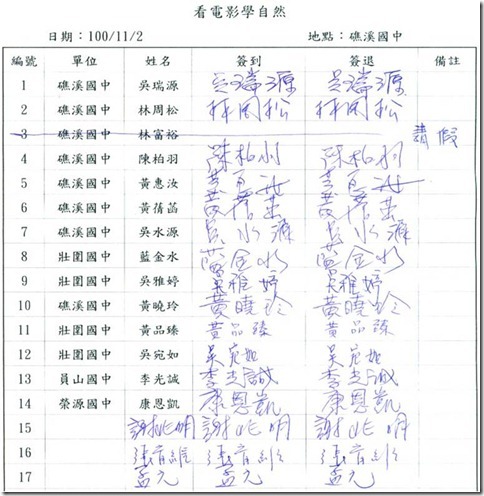 看電影學自然
日期：100/11/2 地點：礁溪國中
編號 單位 姓名 簽到 簽退 備註
1 礁溪國中 吳瑞源 吳瑞源 吳瑞源
2 礁溪國中 林周松 林周松 林周松
3 礁溪國中 林富裕 請假
4 礁溪國中 陳柏羽 陳柏羽 陳柏羽
5 礁溪國中 黃惠汝 黃惠汝 黃惠汝
6 礁溪國中 黃蒨菡 黃蒨菡 黃蒨菡
7 礁溪國中 吳水源 吳水源 吳水源
8 壯圍國中 藍金水 藍金水 藍金水
9 壯圍國中 吳雅婷 吳雅婷 吳雅婷
10 礁溪國中 黃曉玲 黃曉玲 黃曉玲
11 壯圍國中 黃品臻 黃品臻 黃品臻
12 壯圍國中 吳宛如 吳宛如 吳宛如
13 員山國中 李光誠 李光誠 李光誠
14 榮源國中 康恩凱 康恩凱 康恩凱
15 謝兆明 謝兆明 謝兆明
16 張育維 張育維 張育維
17 孟元 孟元 孟元